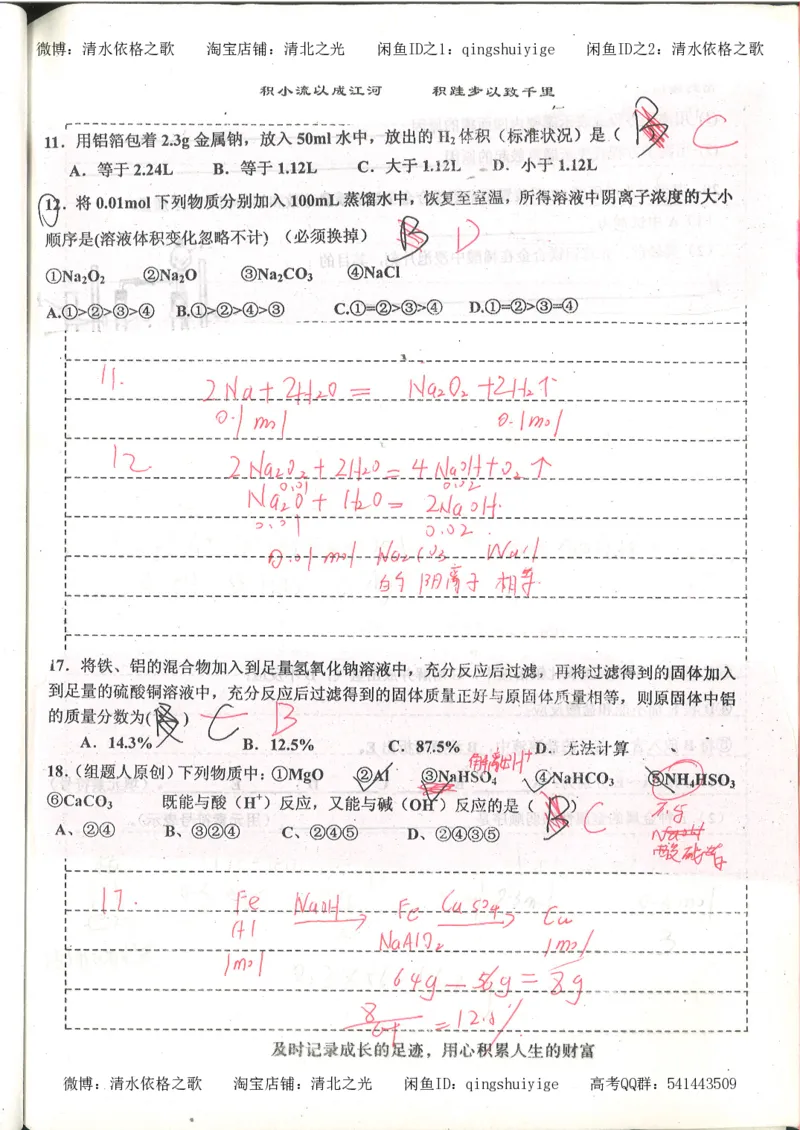 微博：清水依格之歌 淘宝店铺：清北之光 闲鱼ID之1：qingshuiyige 闲鱼ID之2：清水依格之歌
积小流以成江河 积跬步以致千里
11．用铝箔包着2.3g金属钠，放入50ml水中，放出的H₂体积（标准状况）是（ B C
A．等于2.24L B．等于1.12L C．大于1.12L D．小于1.12L
12．将0.01mol下列物质分别加入100mL蒸馏水中，恢复至室温，所得溶液中阴离子浓度的大小
顺序是(溶液体积变化忽略不计) （必须换掉） B D
①Na₂O₂ ②Na₂O ③Na₂CO₃ ④NaCl
A.①>②>③>④ B.①>②>④>③ C.①=②>③>④ D.①=②>③=④
11. 2Na+2H₂O = Na₂O₂+2H₂↑
0.1mol 0.1mol
12. 2Na₂O₂+2H₂O=4NaOH+O₂↑
0.01 0.02
Na₂O+H₂O=2NaOH.
0.01 0.02
0.01mol Na₂CO₃ NaCl
的阴离子相等.
17．将铁、铝的混合物加入到足量氢氧化钠溶液中，充分反应后过滤，再将过滤得到的固体加入
到足量的硫酸铜溶液中，充分反应后过滤得到的固体质量正好与原固体质量相等，则原固体中铝
的质量分数为( ) C B
A．14.3% B．12.5% C．87.5% D．无法计算
解离出H⁺
18.（组题人原创）下列物质中：①MgO ②Al ③NaHSO₄ ④NaHCO₃ ⑤NH₄HSO₃
⑥CaCO₃ 既能与酸（H⁺）反应，又能与碱（OH⁻）反应的是（ B ） C
不与
NaOH
A、②④ B、③②④ C、②④⑤ D、②④③⑤
17. Fe NaOH Fe CuSO₄ Cu
Al NaAlO₂ 1mol
1mol
64g—56g=8g
8/64=12.5%
及时记录成长的足迹，用心积累人生的财富
微博：清水依格之歌 淘宝店铺：清北之光 闲鱼ID：qingshuiyige 高考QQ群：541443509